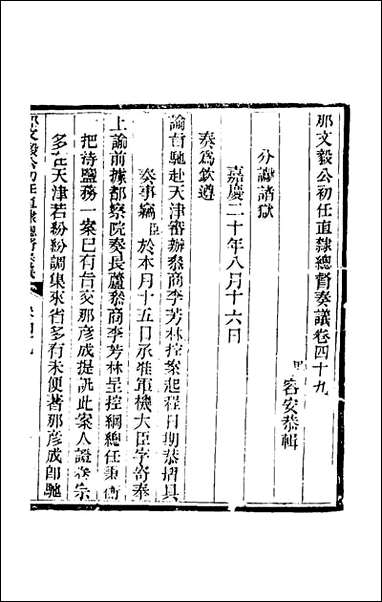 那文毅公初任直隸總督奏議卷四十九
男
容安恭輯
分讞諸獄
嘉慶二十年八月十六日
奏爲欽遵
諭旨馳赴天津審辦叅商李芳林控案起程日期恭摺具
奏事竊臣於本月十五日承准軍機大臣字寄奉
上諭前據都察院奏長蘆叅商李芳林呈控綱總任秉衡
把持鹽務一案已有旨交那彥成提訊此案人證卷宗
多在天津若紛紛調集來省多有未便著那彥成卽馳
那文毅公初任直隸總督奏議